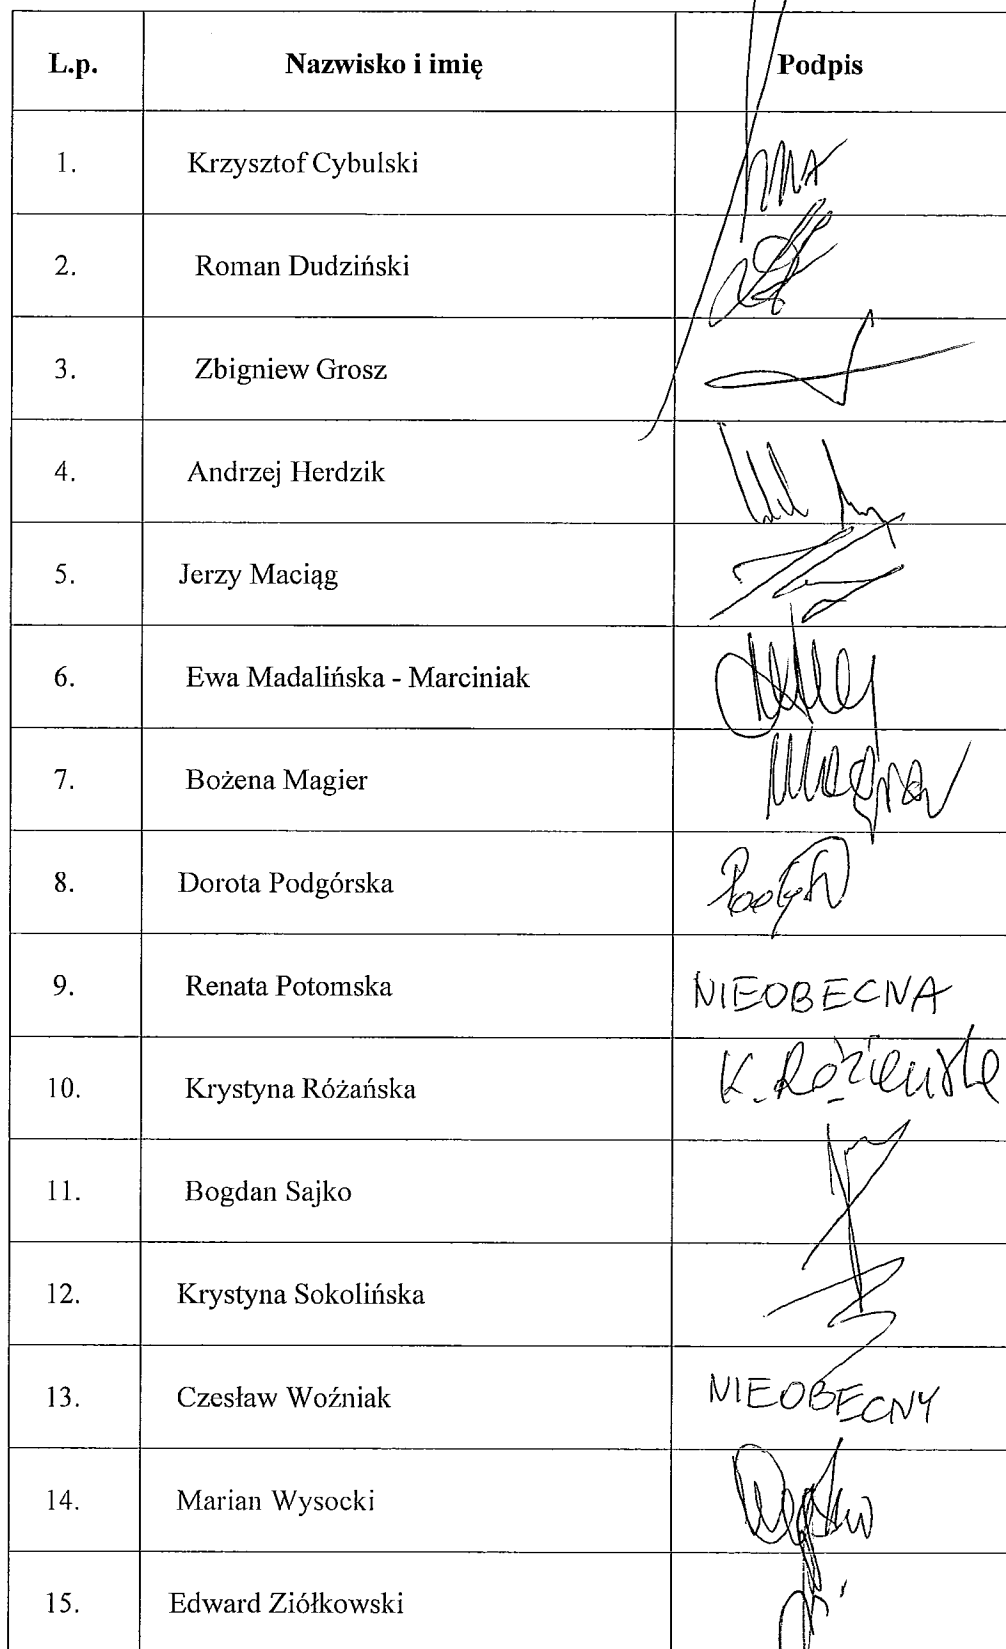 L.p. Nazwisko i imię Podpis
1. Krzysztof Cybulski
2. Roman Dudziński
3. Zbigniew Grosz
4. Andrzej Herdzik
5. Jerzy Maciąg
6. Ewa Madalińska - Marciniak
7. Bożena Magier
8. Dorota Podgórska
9. Renata Potomska NIEOBECNA
10. Krystyna Różańska K. Różańska
11. Bogdan Sajko
12. Krystyna Sokolińska
13. Czesław Woźniak NIEOBECNY
14. Marian Wysocki
15. Edward Ziółkowski